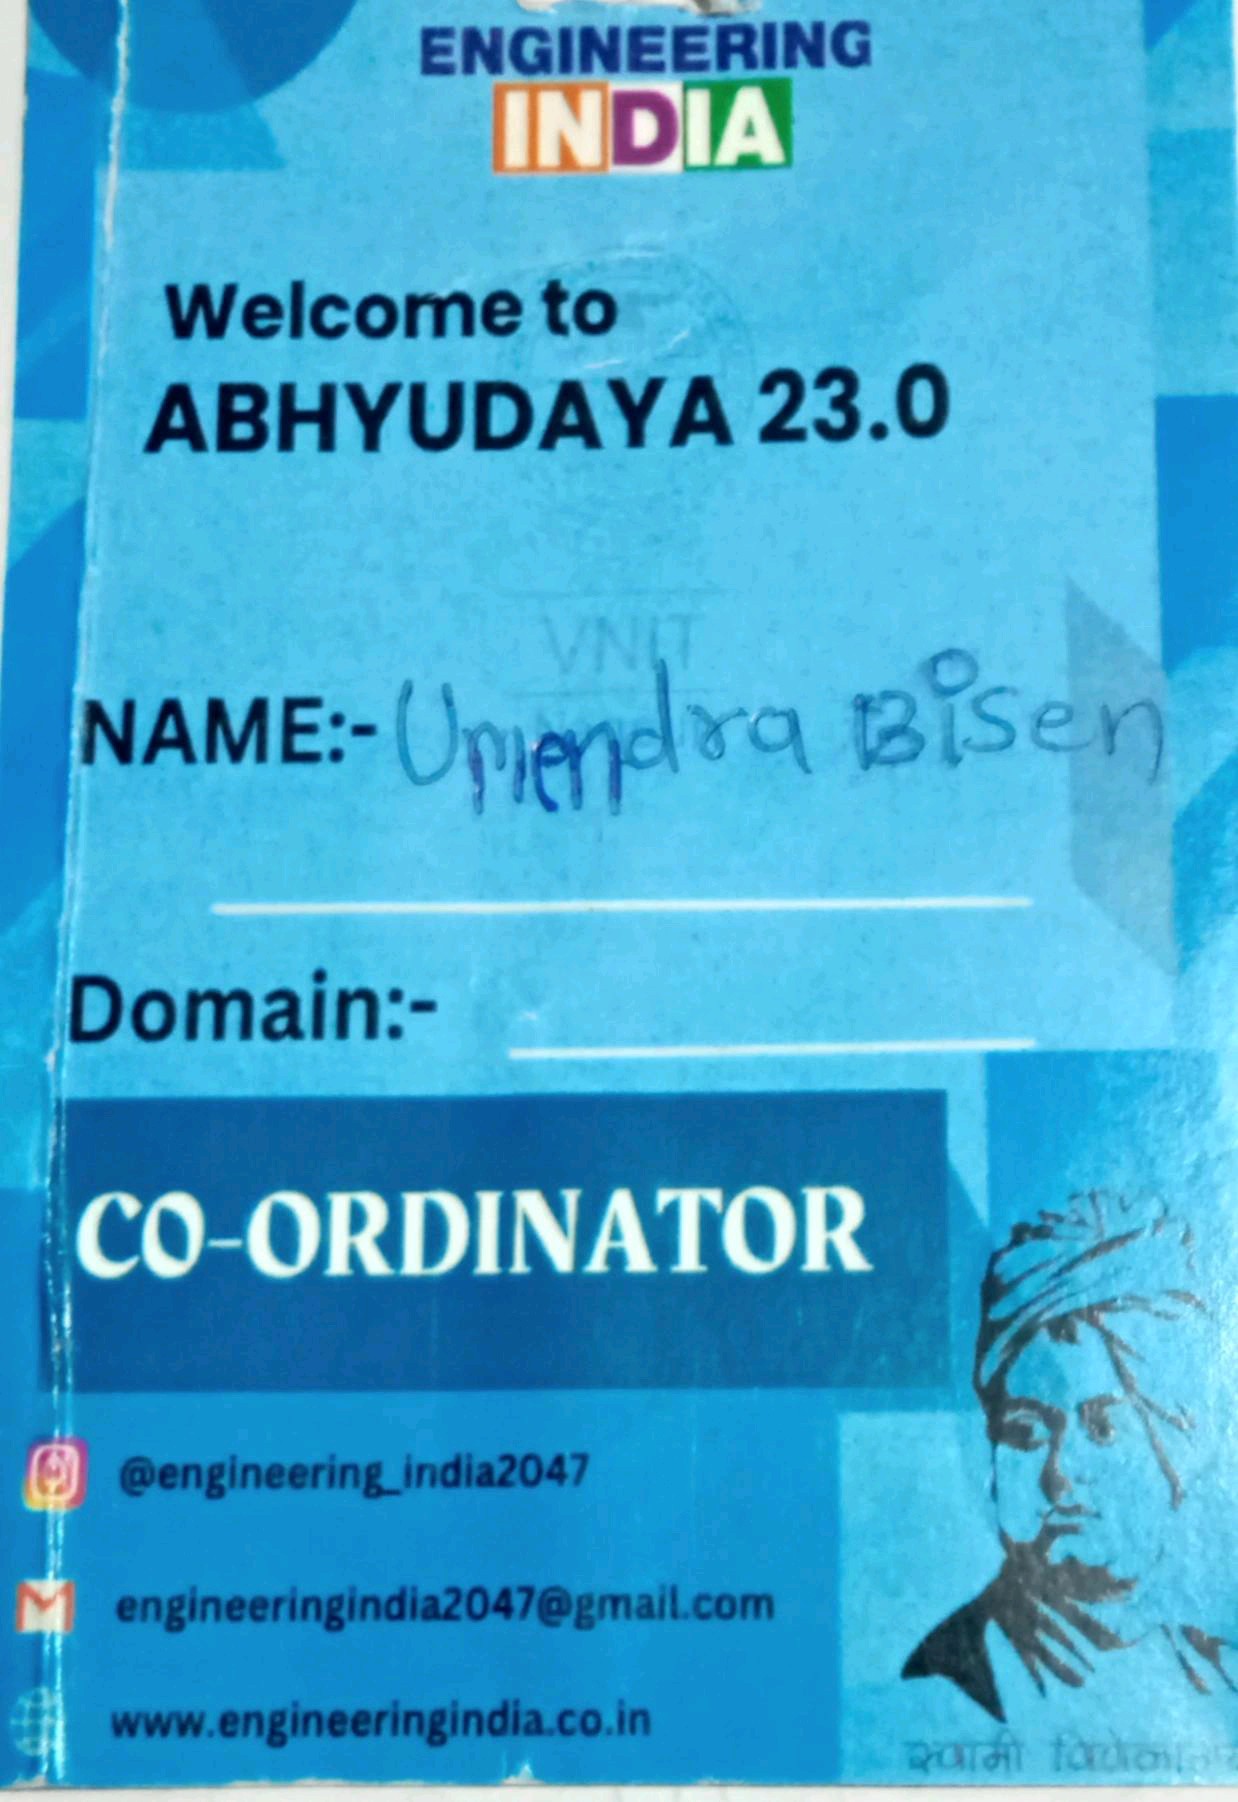 ENGINEERING
INDIA
Welcome to
ABHYUDAYA 23.0
VNIT
NAME:- Upendra Bisen
Domain:-
CO-ORDINATOR
@engineering_india2047
engineeringindia2047@gmail.com
www.engineeringindia.co.in
स्वामी